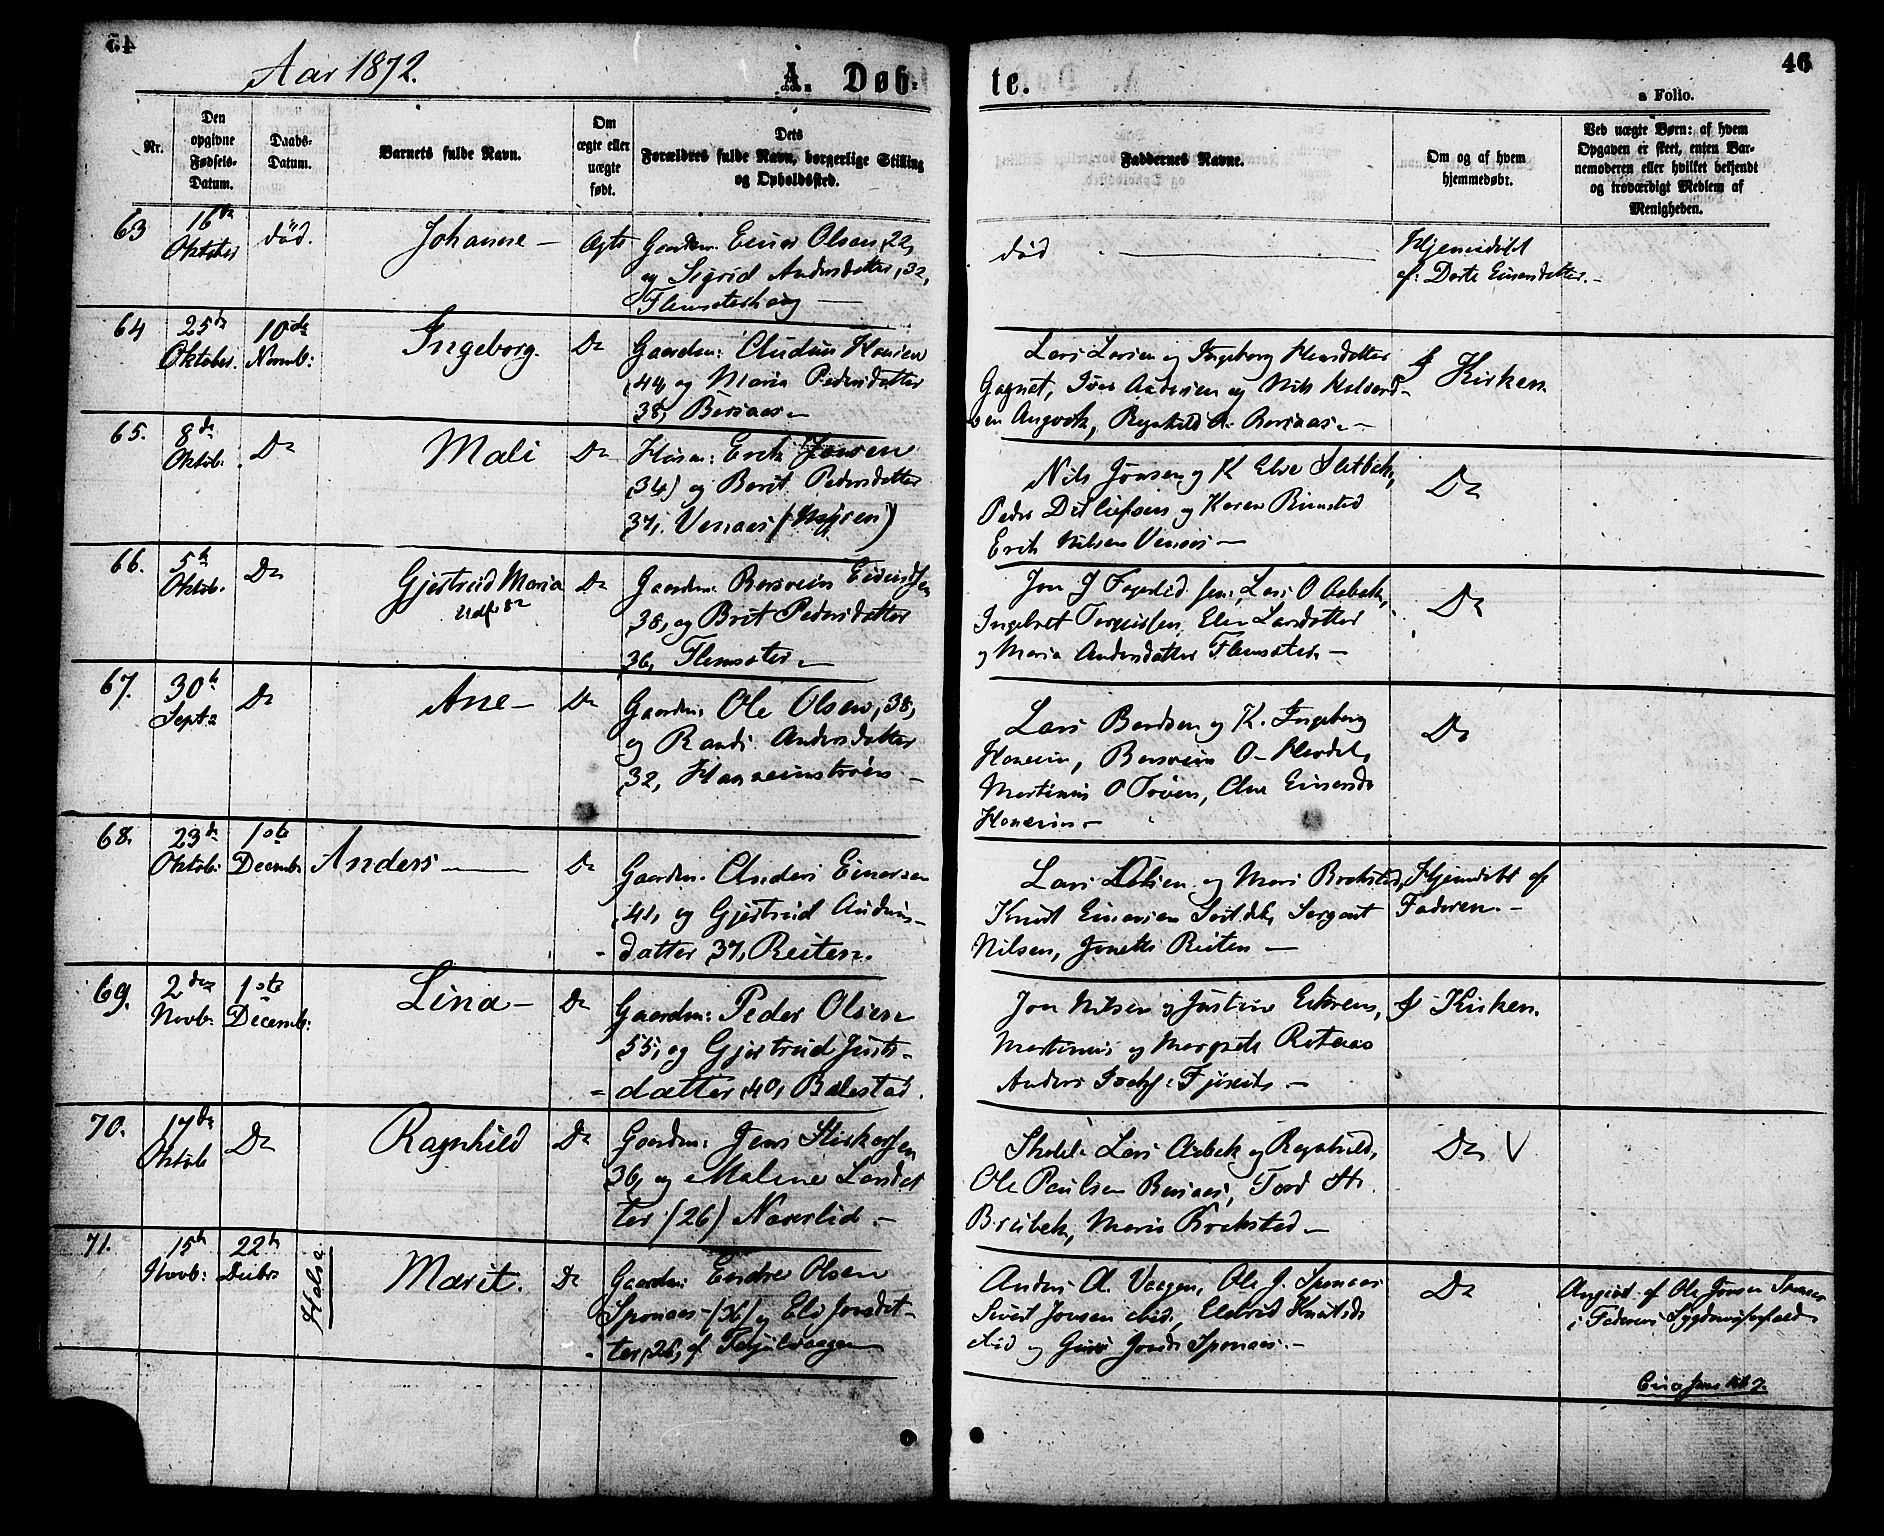 45
Aar 1872.
A. Døb-
te.
46
a Folio.
Nr.
Den
opgivne
Fødsels-
Datum.
Daabs-
Datum.
Barnets fulde Navn.
Om
ægte eller
uægte
født.
Dets
Forældres fulde Navn, borgerlige Stilling
og Opholdssted.
Faddernes Navne.
Om og af hvem
hjemmedøbt.
Ved uægte Børn: af hvem
Opgaven er skeet, enten Bar-
nemoderen eller hvilket bekjendt
og troværdigt Medlem af
Menigheden.
63
16de
Oktober
død.
Johanne –
Ægte
Gaardm. Einar Olsen, 22,
og Sigrid Andersdatter, 32,
Flemsæterhaug
død
Hjemmedøbt
af: Dorte Einarsdatter. –
64
25de
Oktober.
10de
Novmb:
Ingeborg.
Do
Gaardm: Audun Hansen
44, og Maria Pedersdatter
38, Bersaas –
Lars Larsen og Ingeborg
Gagnat, Iver Andersen og Nils Halvord-
sen Angvik, Ragnhild A. Bersaas. –
I Kirken
65.
8de
Oktob:
Do
Mali
Do
Husm: Erik Jonsen
(34) og Berit Pedersdatter
37, Venaas (Myren)
Nils Jonsen og K. Else Sletbak,
Peder Ditlefsen og Karen Rimsted
Erik Nilsen Venaas –
Do
66.
5te
Oktob.
Do
Gjertrud Maria
Do
Gaardm. Bersvein Eivindsen
38, og Brit Pedersdatter
36, Flemsæter –
Jon J Fagerlid sen:, Lars O Aabak,
Ingebret Torgeirsen, Elen Larsdatter
og Maria Andersdatter Flemsæter. –
Do
67.
30te
Septr
Do
Ane –
Do
Gaardm: Ole Olsen, 38,
og Randi Andersdatter
32, Haaneimstrøen –
Lars Bardsen og K. Ingeborg
Haneim, Bersvein O.
Martinus O Trøen, Ane Einarsd.
Haneim –
Do
68.
23de
Oktob:
1ste
Decemb:
Anders
Do
Gaardm. Anders Einarsen
41, og Gjertrud Anders-
datter 37, Reiten.
Lars Olsen og Mari Brekstad,
Knut Einarsen, Sergant
Nilsen, Jonette Reiten –
Hjemdøbt af
Faderen. –
69.
2den
Novb:
1ste
Decemb:
Lina –
Do
Gaardm: Peder Olsen
55, og Gjertrud Jons-
datter, 40, Balestad.
Jon Nilsen og Justine Eikrem,
Martinus og Margrete Rotaas
Anders
I Kirken.
70.
17de
Oktob
Do
Ragnhild
Do
Gaardm: Jens
36, og Malene Larsdat
ter (26) Naverlid. –
Lars Aabak og Ragnhild,
Ole Paulsen Bersaas, Tord H.
Breibak, Maria Brekstad –
Do V
71.
15te
Novb:
22de
Decbr
Halsa
Marit.
Do
Gaardm: Endre Olsen
Sponaas – (36) og Eli Jonsdat-
ter, 26, af
Anders A. Vaagen, Ole J. Sponaas
Sivert Jonsen ibid, Eldrid Knutsd.
Lid og Guri Jonsd. Sponaas. –
Do
Angivet af Ole Jonsen Sponaas
i Faderens Sygdomsforfald